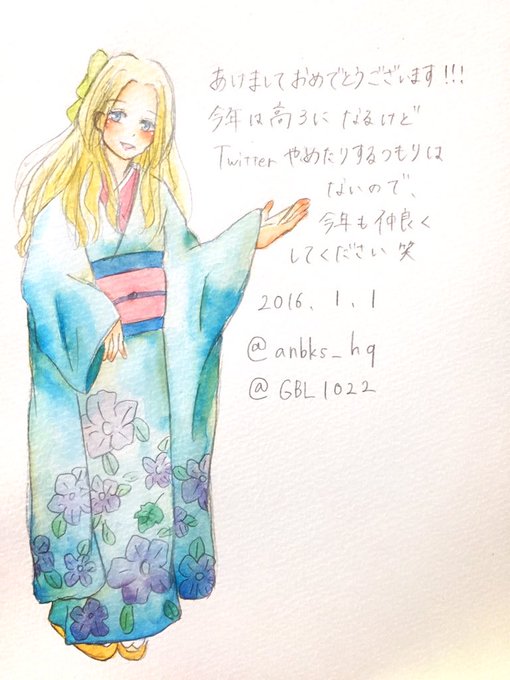 あけましておめでとうございます!!!
今年は高3になるけど
Twitterやめたりするつもりは
ないので、
今年も仲良く
してください 笑
2016. 1. 1
@anbks_hq
@GBL1022